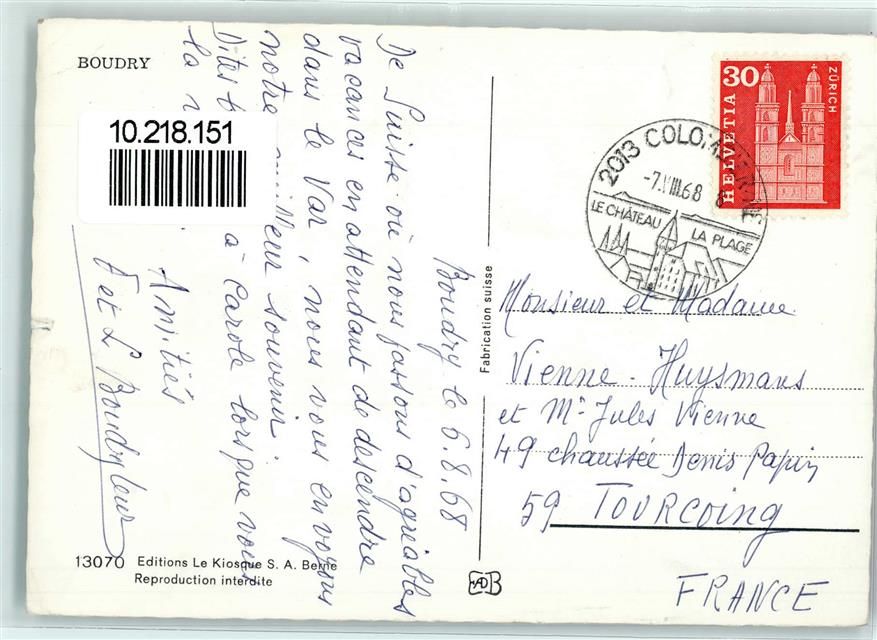 BOUDRY
10.218.151
Boudry le 6.8.68
De Suisse où nous passons d'agréables
vacances en attendant de descendre
dans le Var, nous vous envoyons
notre meilleur souvenir.
Dites à Carole lorsque vous
la
Amitiés
et L
13070 Editions Le Kiosque S. A. Berne
Reproduction interdite
Fabrication suisse
HELVETIA
30
ZÜRICH
2013 COLOMBIER NE
-7.VIII.68
8
LE CHÂTEAU
LA PLAGE
Monsieur et Madame
Vienne-Huysmans
et Mr Jules Vienne
49 chaussée Denis Papin
59 TOURCOING
FRANCE